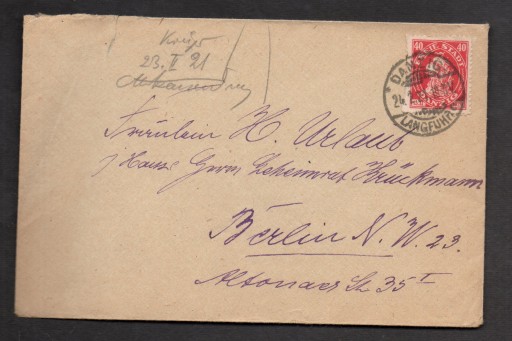 23. V 21
40 40
FREIE STADT
DANZIG
LANGFUHR
Fräulein H. Urlaub
Hause Herrn Geheimrat Krückmann
Berlin N. W. 23.
Altonaer St 35 I